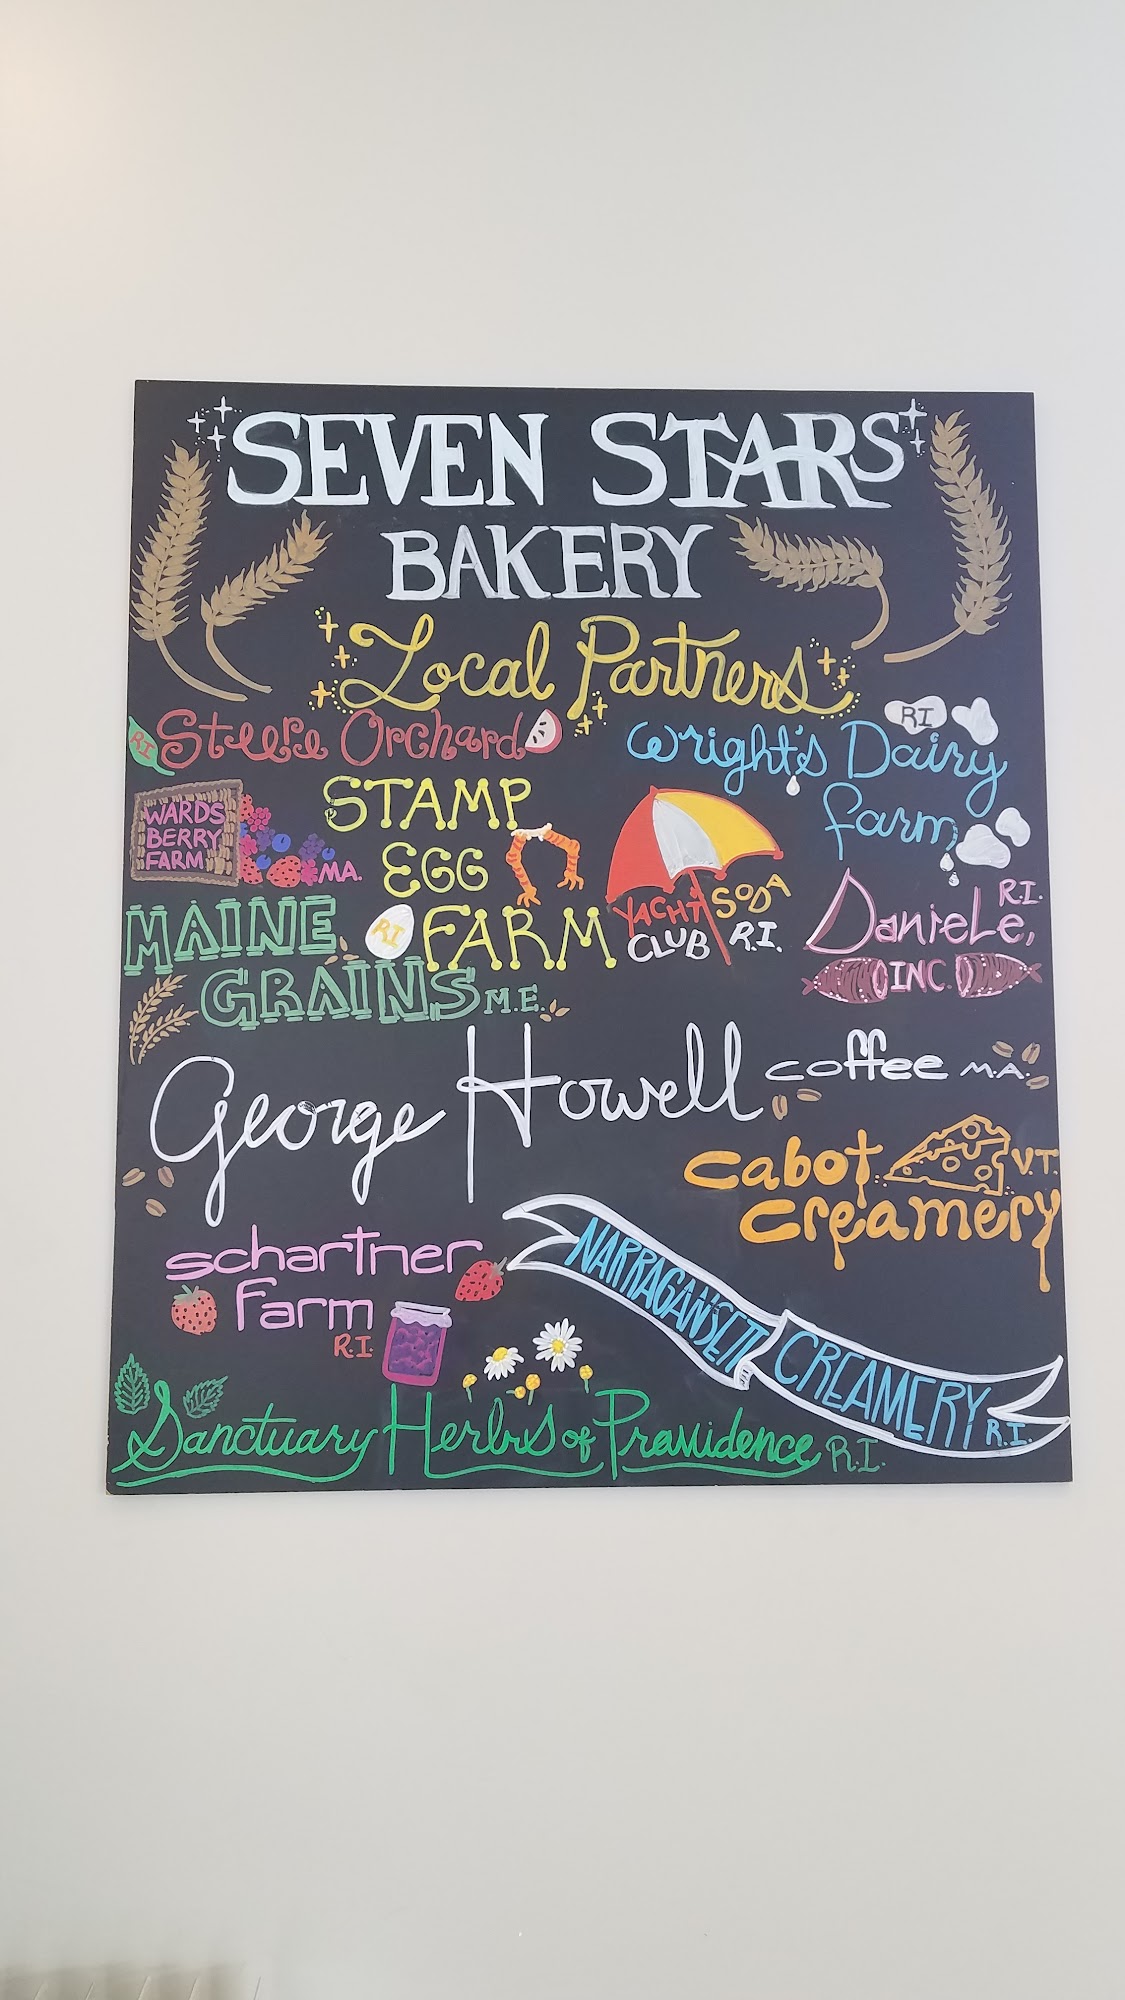 SEVEN STARS
BAKERY
Local Partners
RI Steere Orchard
RI
Wright's Dairy
farm
WARDS
BERRY
FARM
MA.
STAMP
EGG
RI FARM
YACHT SODA
CLUB R.I.
R.I.
Daniele,
INC.
MAINE
GRAINS M.E.
George Howell coffee M.A.
cabot V.T.
creamery
schartner
farm
R.I.
NARRAGANSETT CREAMERY R.I.
Sanctuary Herbs of Providence R.I.